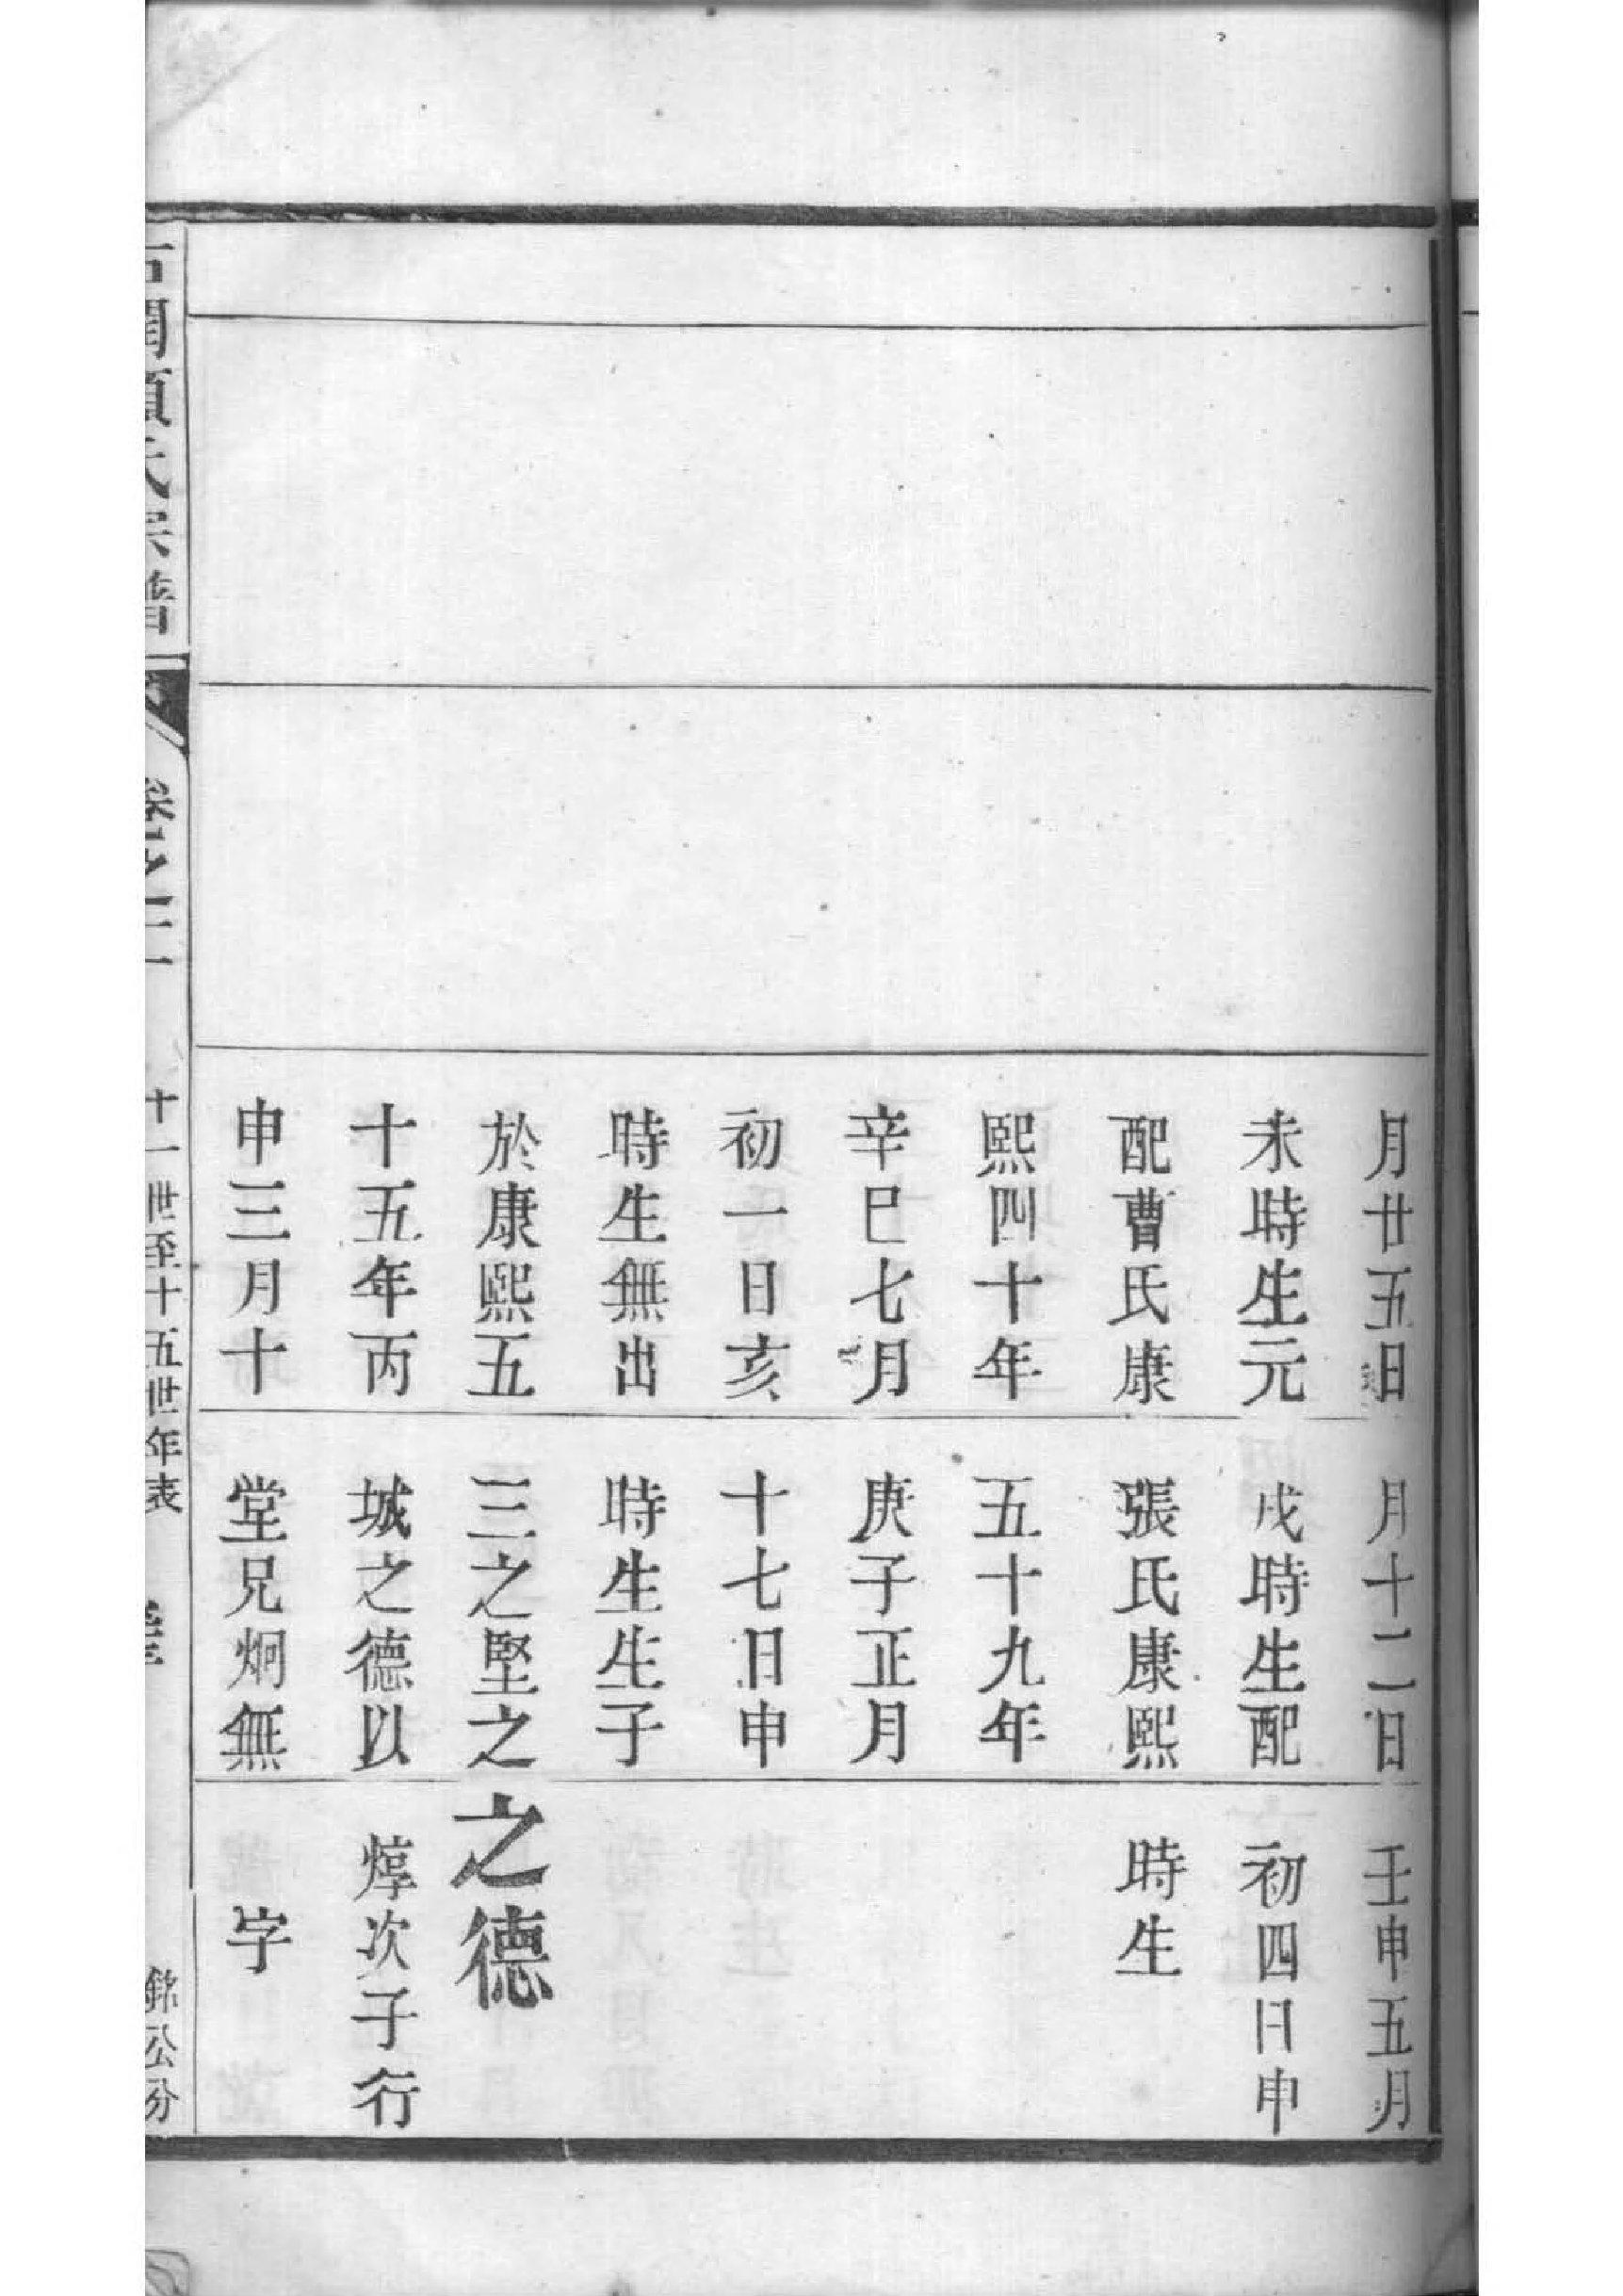 月廿五日
未時生元
配曹氏康
熙四十年
辛巳七月
初一日亥
時生無出
於康熙五
十五年丙
申三月十
月十二日
戌時生配
張氏康熙
五十九年
庚子正月
十七日申
時生生子
三之堅之
城之德以
堂兄炯無
壬申五月
初四日申
時生
之德
焞次子行
字
氏宗譜
卷之二
十一世至十五世年表
銘公分